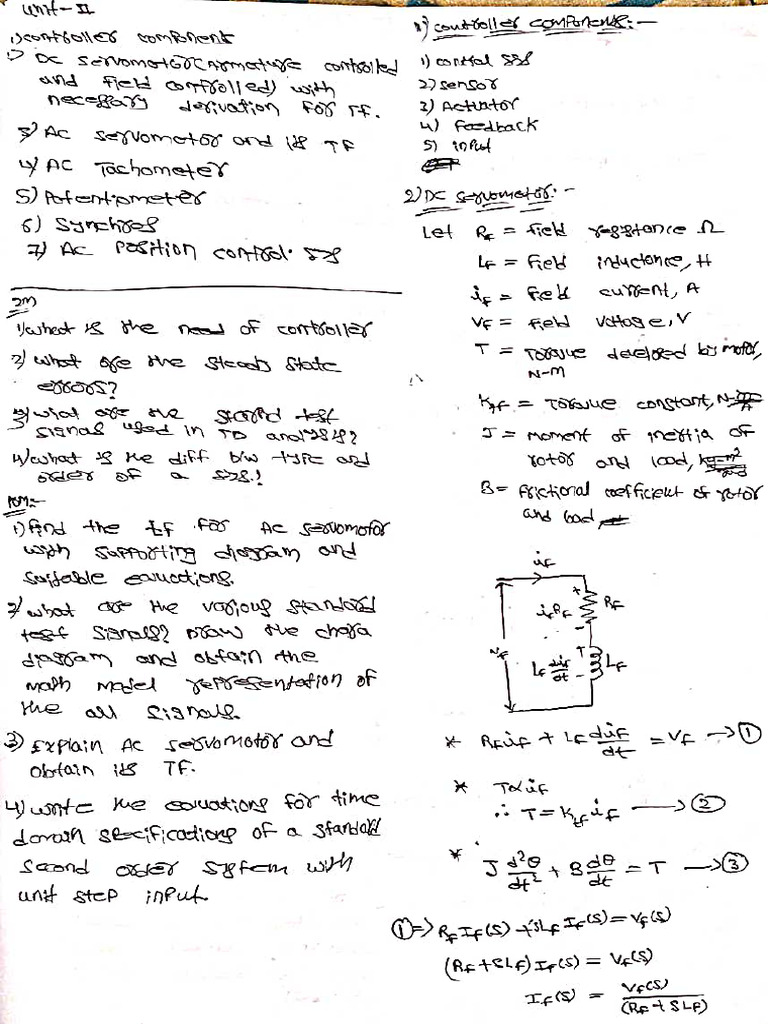 Unit-II
1) controller component
2) DC servomotor (Armature controlled
and field controlled) with
necessary derivation for TF.
3) AC servomotor and its TF
4) AC Tachometer
5) Potentiometer
6) Synchros
7) AC Position control sys
2M
1) what is the need of controller
2) what are the steady state
errors?
3) what are the standard test
signals used in TD analysis?
4) what is the diff b/w type and
order of a sys.?
10M:-
1) find the t.f for AC servomotor
with supporting diagram and
suitable equations.
2) what are the various standard
test signals? Draw the chara
diagram and obtain the
math model representation of
the all signals.
3) Explain AC servomotor and
obtain its TF.
4) write the equations for time
domain specifications of a standard
second order system with
unit step input.
1) controller components:-
1) control sys
2) sensor
3) Actuator
4) feedback
5) input
2) DC servomotor:-
Let Rf = field resistance Ω
Lf = field inductance, H
if = field current, A
Vf = field voltage, V
T = Torque developed by motor,
N-m
Ktf = Torque constant, N-m/A
J = moment of inertia of
rotor and load, kg-m²
B = frictional coefficient of rotor
and load
if
+
if Rf
Rf
-
vf
+
Lf dif/dt
-
Lf
* Rf if + Lf dif/dt = Vf → ①
* T α if
∴ T = Ktf if → ②
* J d²θ/dt² + B dθ/dt = T → ③
① => Rf If(s) + sLf If(s) = Vf(s)
(Rf + SLf) If(s) = Vf(s)
If(s) = Vf(s)/(Rf + SLf)